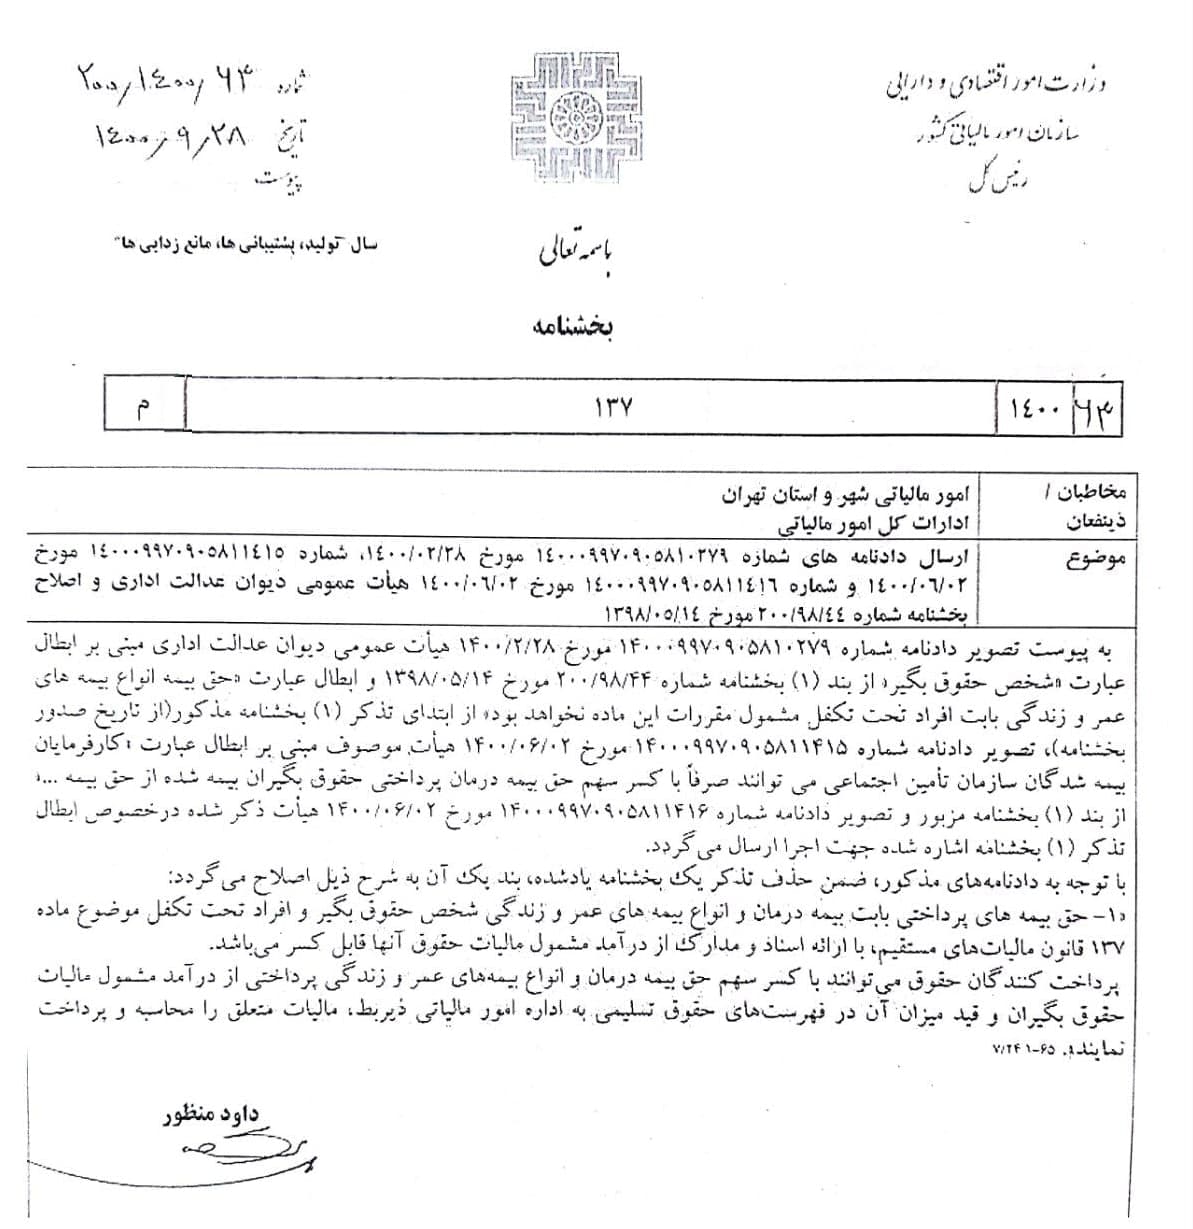 وزارت امور اقتصادی و دارایی
سازمان امور مالیاتی کشور
رئیس کل
شماره ۲۰۰/۱۴۰۰/۶۳
تاریخ ۱۴۰۰/۹/۲۸
پیوست
سال "تولید، پشتیبانی ها، مانع زدایی ها"
باسمه تعالی
بخشنامه
۶۳ ۱٤۰۰ ۱۳۷ م
مخاطبان / ذینفعان
امور مالیاتی شهر و استان تهران
ادارات کل امور مالیاتی
موضوع
ارسال دادنامه های شماره ۱٤۰۰۰۹۹۷۰۹۰۵۸۱۰۲۷۹ مورخ ۱٤۰۰/۰۲/۲۸، شماره ۱٤۰۰۰۹۹۷۰۹۰۵۸۱۱٤۱۵ مورخ
۱٤۰۰/۰۶/۰۲ و شماره ۱٤۰۰۰۹۹۷۰۹۰۵۸۱۱٤۱۶ مورخ ۱٤۰۰/۰۶/۰۲ هیأت عمومی دیوان عدالت اداری و اصلاح
بخشنامه شماره ۲۰۰/۹۸/٤٤ مورخ ۱۳۹۸/۰۵/۱٤
به پیوست تصویر دادنامه شماره ۱۴۰۰۰۹۹۷۰۹۰۵۸۱۰۲۷۹ مورخ ۱۴۰۰/۲/۲۸ هیأت عمومی دیوان عدالت اداری مبنی بر ابطال
عبارت «شخص حقوق بگیر» از بند (۱) بخشنامه شماره ۲۰۰/۹۸/۴۴ مورخ ۱۳۹۸/۰۵/۱۴ و ابطال عبارت «حق بیمه انواع بیمه های
عمر و زندگی بابت افراد تحت تکفل مشمول مقررات این ماده نخواهد بود» از ابتدای تذکر (۱) بخشنامه مذکور(از تاریخ صدور
بخشنامه)، تصویر دادنامه شماره ۱۴۰۰۰۹۹۷۰۹۰۵۸۱۱۴۱۵ مورخ ۱۴۰۰/۰۶/۰۲ هیأت موصوف مبنی بر ابطال عبارت «کارفرمایان
بیمه شدگان سازمان تأمین اجتماعی می توانند صرفاً با کسر سهم حق بیمه درمان پرداختی حقوق بگیران بیمه شده از حق بیمه ...»
از بند (۱) بخشنامه مزبور و تصویر دادنامه شماره ۱۴۰۰۰۹۹۷۰۹۰۵۸۱۱۴۱۶ مورخ ۱۴۰۰/۰۶/۰۲ هیأت ذکر شده درخصوص ابطال
تذکر (۱) بخشنامه اشاره شده جهت اجرا ارسال می‌گردد.
با توجه به دادنامه‌های مذکور، ضمن حذف تذکر یک بخشنامه یادشده، بند یک آن به شرح ذیل اصلاح می‌گردد:
«۱- حق بیمه های پرداختی بابت بیمه درمان و انواع بیمه های عمر و زندگی شخص حقوق بگیر و افراد تحت تکفل موضوع ماده
۱۳۷ قانون مالیات‌های مستقیم، با ارائه اسناد و مدارک از درآمد مشمول مالیات حقوق آنها قابل کسر می‌باشد.
پرداخت کنندگان حقوق می‌توانند با کسر سهم حق بیمه درمان و انواع بیمه‌های عمر و زندگی پرداختی از درآمد مشمول مالیات
حقوق بگیران و قید میزان آن در فهرست‌های حقوق تسلیمی به اداره امور مالیاتی ذیربط، مالیات متعلق را محاسبه و پرداخت
نمایند». ۶۵-۷/۲۴۱
داود منظور